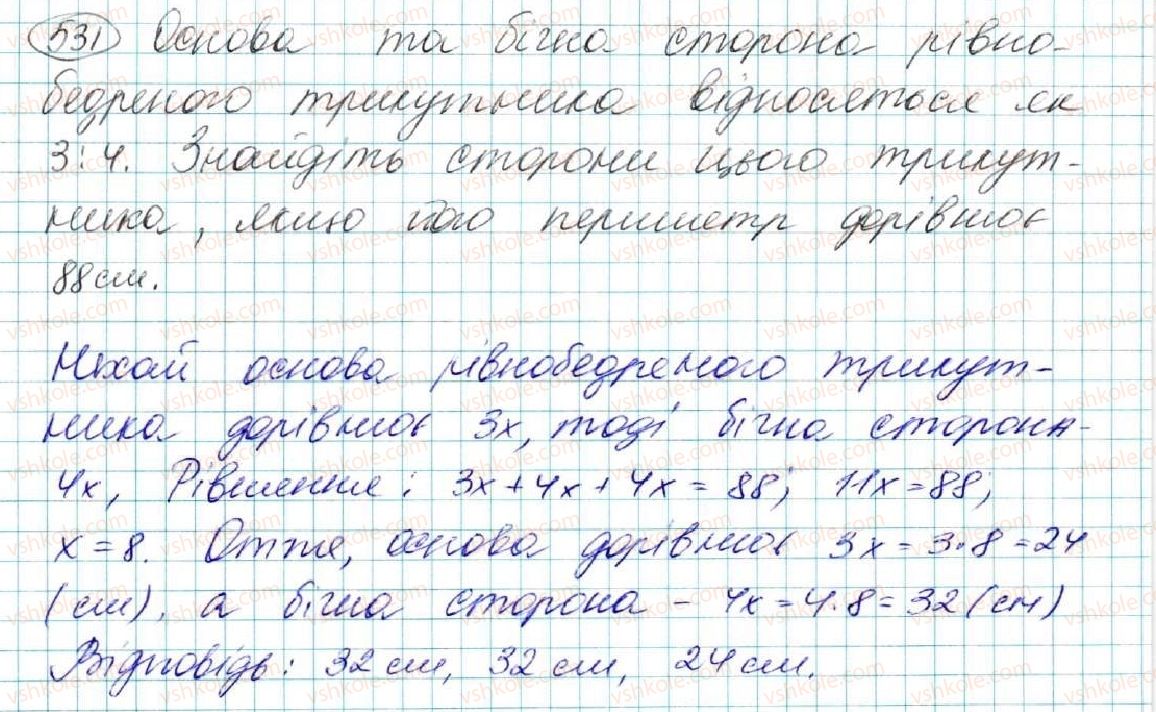 531 Основа та бічна сторона рівно-
бедреного трикутника відносяться як
3:4. Знайдіть сторони цього трикут-
ника, якщо його периметр дорівнює
88 см.
Нехай основа рівнобедреного трикут-
ника дорівнює 3x, тоді бічна сторона-
4x, Рівняння: 3x+4x+4x=88; 11x=88;
x=8. Отже, основа дорівнює 3x=3·8=24
(см), а бічна сторона - 4x=4·8=32 (см)
Відповідь: 32 см, 32 см, 24 см.